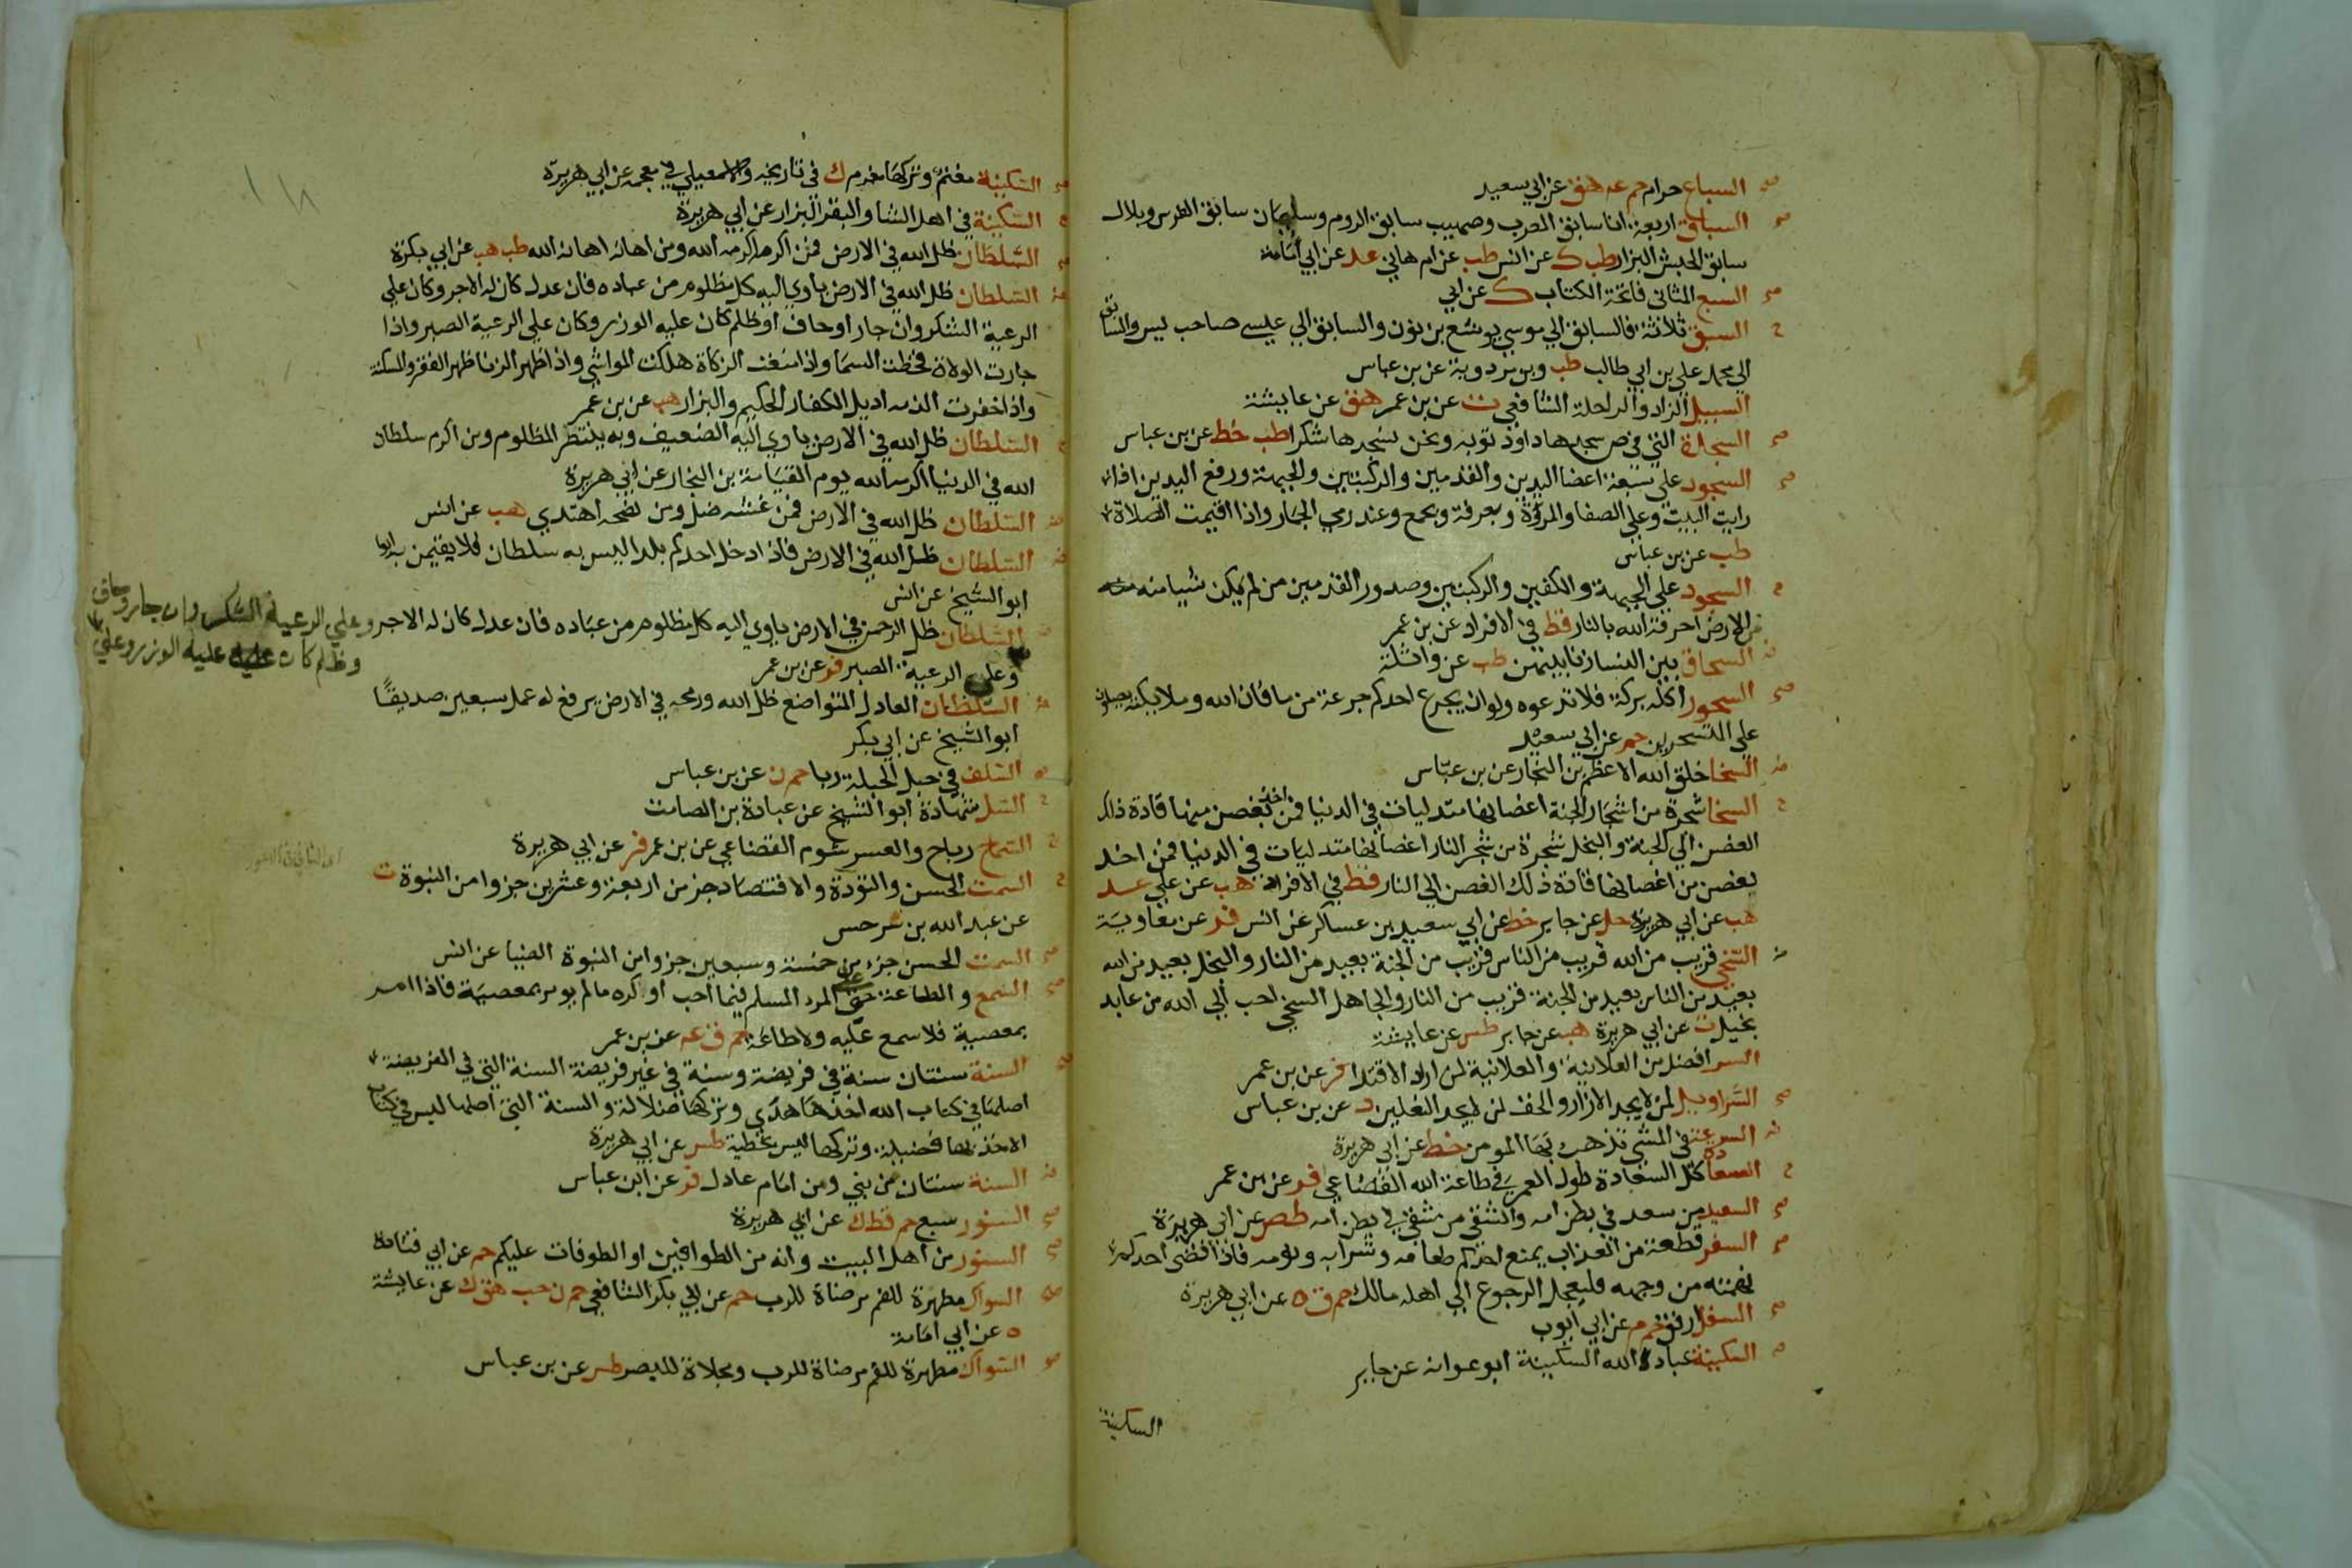 صح السباع حرام حم ع هق عن ابي سعيد
صح السباق اربعة انا سابق العرب وصهيب سابق الروم وسلمان سابق الفرس وبلال
سابق الحبش البزار طب ك عن انس طب عن ام هاني عد عن ابي أمامة
صح السبع المثاني فاتحة الكتاب ك عن ابي
ح السبق ثلاثة فالسابق الي موسي يوشع بن نون والسابق الي عيسي صاحب يس والسابق
الي محمد علي بن ابي طالب طب وبن مردوية عن بن عباس
السبيل الزاد والراحلة الشافعي ت عن بن عمر هق عن عايشة
صح السجدة التي في ص سجدها داود توبه ونحن نسجدها شكرا طب خط عن بن عباس
صح السجود علي سبعة اعضا اليدين والقدمين والركبتين والجبهة ورفع اليدين اذا
رايت البيت وعلي الصفا والمروة وبعرفة وبجمع وعند رمي الجمار واذا اقيمت الصلاة
طب عن بن عباس
ح السجود علي الجبهة والكفين والركبتين وصدور القدمين من لم يمكن شيا منه
من الارض احرقه الله بالنار قط في الافراد عن بن عمر
السحاق بين النسا زنا بينهن طب عن واثلة
صح السحور اكله بركة فلا تدعوه ولو ان يجرع احدكم جرعة من ما فان الله وملايكته يصلون
علي المتسحرين حم عن ابي سعيد
السخا خلق الله الاعظم بن النجار عن بن عباس
ح السخا شجرة من اشجار الجنة اغصانها متدليات في الدنيا فمن اخذ بغصن منها قاده ذلك
الغصن الي الجنة والبخل شجرة من شجر النار اغصانها متدليات في الدنيا فمن اخذ
بغصن من اغصانها قاده ذلك الغصن الي النار قط في الافراد هب عن علي عد
هب عن ابي هريرة حل عن جابر خط عن ابي سعيد بن عساكر عن انس فر عن معاوية
السخي قريب من الله قريب من الناس قريب من الجنة بعيد من النار والبخيل بعيد من الله
بعيد من الناس بعيد من الجنة قريب من النار والجاهل السخي احب الي الله من عابد
بخيل ت عن ابي هريرة هب عن جابر طس عن عايشة
السر افضل من العلانية والعلانية لمن اراد الاقتدا فر عن بن عمر
صح السراويل لمن لا يجد الازار والخف لمن لا يجد النعلين د عن بن عباس
السرعة في المشي تذهب بها المومن خط عن ابي هريرة
ح السعادة كل السعادة طول العمر في طاعة الله القضاعي فر عن بن عمر
صح السعيد من سعد في بطن امه والشقي من شقي في بطن امه طص عن ابي هريرة
صح السفر قطعة من العذاب يمنع احدكم طعامه وشرابه ونومه فاذا قضي احدكم
نهمته من وجهه فليعجل الرجوع الي اهله مالك حم ق ه عن ابي هريرة
صح السفل ارفق حم م عن ابي ايوب
صح السكينة عباد الله السكينة ابو عوانه عن جابر
السكينة
صح السكينة مغنم وتركها مغرم ك في تاريخه والاسمعيلي في معجمه عن ابي هريرة
ح السكينة في اهل الشا والبقر البزار عن ابي هريرة
صح السلطان ظل الله في الارض فمن اكرمه اكرمه الله ومن اهانه اهانه الله طب هب عن ابي بكرة
السلطان ظل الله في الارض ياوي اليه كل مظلوم من عباده فان عدل كان له الاجر وكان علي
الرعية الشكر وان جار او حاف او ظلم كان عليه الوزر وكان علي الرعية الصبر واذا
جارت الولاة قحطت السما واذا منعت الزكاة هلكت المواشي واذا ظهر الزنا ظهر الفقر والمسكنة
واذا خفرت الذمه اديل الكفار الحكيم والبزار هب عن بن عمر
السلطان ظل الله في الارض ياوي اليه الضعيف وبه ينتصر المظلوم ومن اكرم سلطان
الله في الدنيا اكرمه الله يوم القيامة بن النجار عن ابي هريرة
السلطان ظل الله في الارض فمن غشه ضل ومن نصحه اهتدي هب عن انس
السلطان ظل الله في الارض فاذا دخل احدكم بلدا ليس به سلطان فلا يقيمن به
ابو الشيخ عن انس
السلطان ظل الرحمن في الارض ياوي اليه كل مظلوم من عباده فان عدل كان له الاجر وعلي الرعية الشكر وان جار وحاف
وظلم كان عليه الوزر وعلي
وعلي الرعية الصبر فر عن بن عمر
السلطان العادل المتواضع ظل الله ورمحه في الارض يرفع له عمل سبعين صديقًا
ابو الشيخ عن ابي بكر
السلف في حبل الحبلة ربا حم ن عن بن عباس
ح السل شهادة ابو الشيخ عن عبادة بن الصامت
السماح رباح والعسر شوم القضاعي عن بن عمر فر عن ابي هريرة
ح السمت الحسن والتؤدة والاقتصاد جز من اربعة وعشرين جزوا من النبوة ت
عن عبد الله بن سرجس
صح السمت الحسن جزء من خمسة وسبعين جزوا من النبوة الضيا عن انس
صح السمع والطاعة حق علي المرء المسلم فيما احب او كره مالم يومر بمعصية فاذا امر
بمعصية فلا سمع عليه ولا طاعة حم ق ع عن بن عمر
السنة سنتان سنة في فريضة وسنة في غير فريضة السنة التي في الفريضة
اصلها في كتاب الله اخذها هدي وتركها ضلالة والسنة التي اصلها ليس في كتاب
الاخذ بها فضيلة وتركها ليس بخطية طس عن ابي هريرة
السنة سنتان من نبي ومن امام عادل فر عن ابن عباس
صح السنور سبع حم قط ك عن ابي هريرة
صح السنور من اهل البيت وانه من الطوافين او الطوفات عليكم حم عن ابي قتادة
صح السواك مطهرة للفم مرضاة للرب حم عن ابي بكر الشافعي حم ن حب هق ك عن عايشة
ه عن ابي امامة
السواك مطهرة للفم مرضاة للرب ومجلاة للبصر طس عن بن عباس